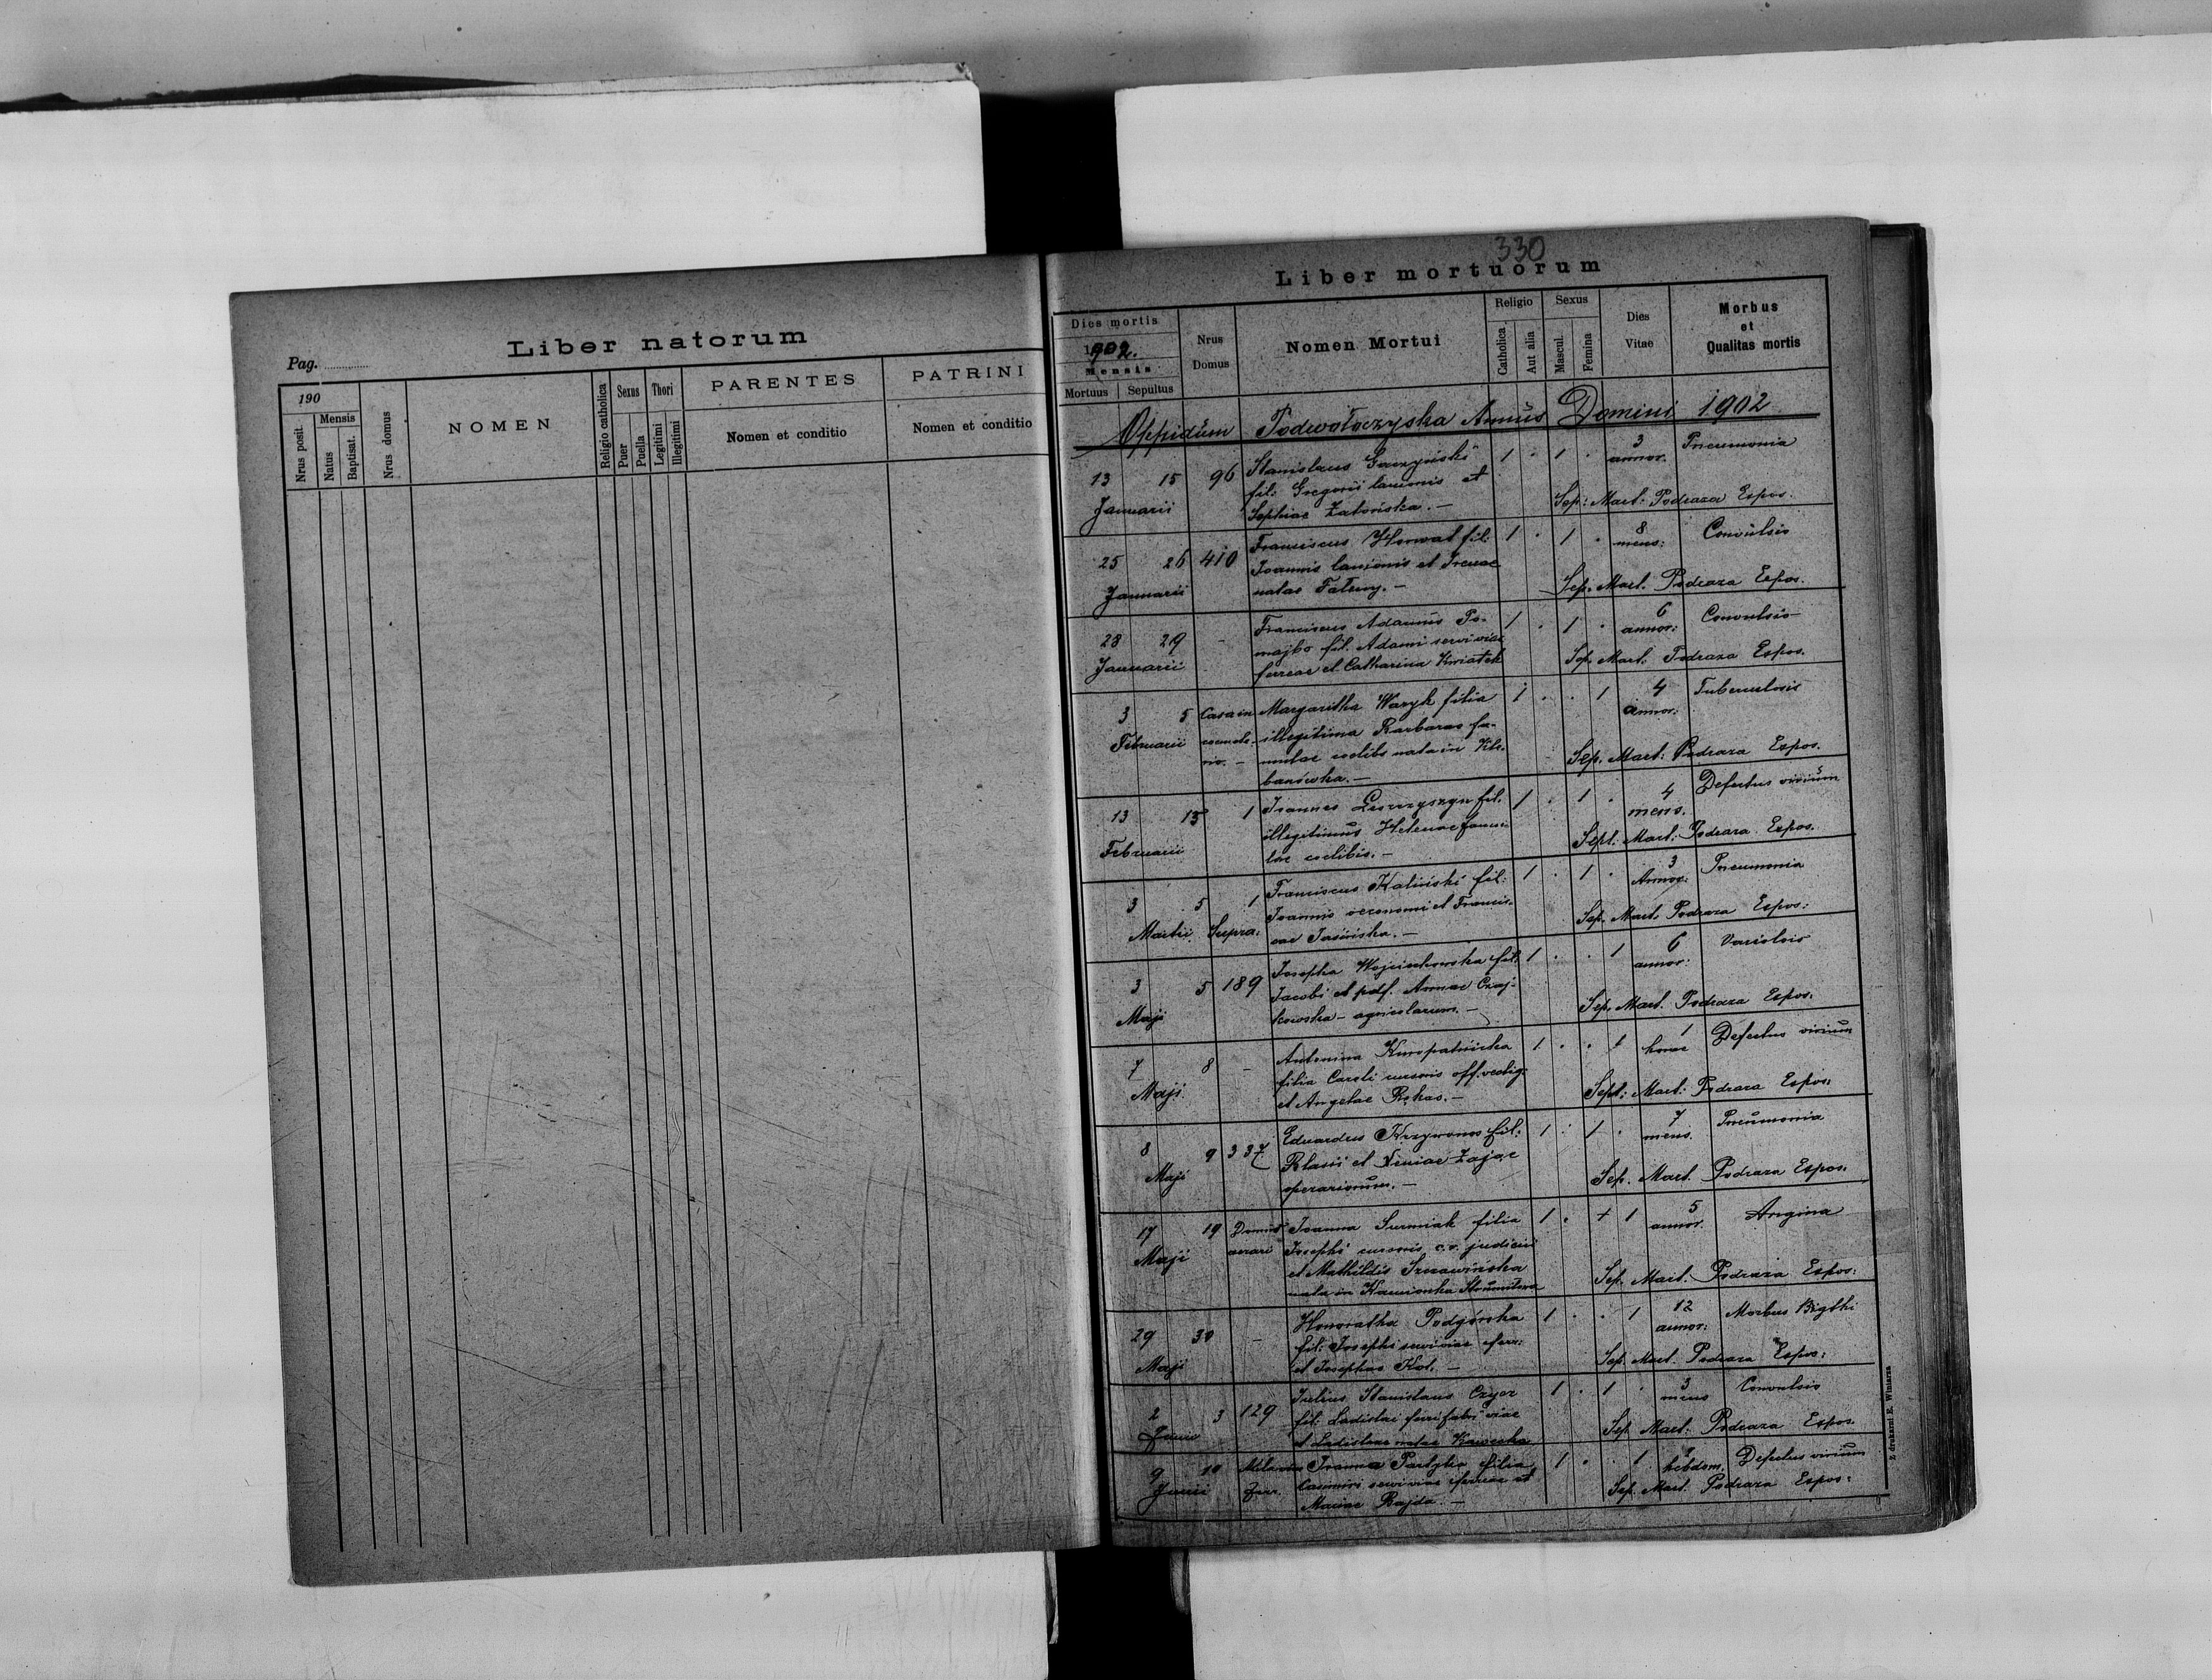 Pag.
Liber natorum
190
Nrus posit.
Mensis
Natus
Baptisat.
Nrus domus
NOMEN
Religio catholica
Sexus
Puer
Puella
Thori
Legitimi
Illegitimi
PARENTES
Nomen et conditio
PATRINI
Nomen et conditio
330
Liber mortuorum
Dies mortis
1902.
Mensis
Mortuus
Sepultus
Nrus
Domus
Nomen Mortui
Religio
Catholica
Aut alia
Sexus
Mascul.
Femina
Dies
Vitae
Morbus
et
Qualitas mortis
Oppidum Podwołoczyska Annus Domini 1902
13 15 96 Stanislaus 1 . 1 . 3 annor. Pneumonia
Januarii fil: Gregorii lanionis et
Sophiae Zatorska. — Sep: Mart: Podraza Expos.
25 26 410 Franciscus Horwat fil: 1 . 1 . 8 mens: Convulsio
Januarii Joannis lanionis et Irenae
natae — Sep. Mart. Podraza Expos.
28 29 - Franciscus Adamus Po- 1 . 1 . 6 annor: Convulsio
Januarii majbo fil. Adami servi viae
ferreae et Catharina Kwiatek Sep. Mart. Podraza Expos.
3 5 Casa in Margaritha Wazyk filia 1 . . 1 4 annor: Tuberculosis
Februarii coemete- illegitima Barbarae fa-
rio. — mulae coelibs nata in Klе-
banówka. — Sep. Mart: Podraza Expos.
13 15 1 Joannes Leszczyszyn fil. 1 . 1 . 4 mens. Defectus virium
Februarii illegitimus Helenae famu-
lae coelibis. — Sept. Mart: Podraza Expos.
3 5 1 Franciscus Kaliński fil: 1 . 1 . 3 Annor: Pneumonia
Martii Supra: Joannis oeconomi et Francis-
cae Jasińska. — Sep. Mart. Podraza Expos:
3 5 189 Josepha Wojciechowska fil: 1 . . 1 6 annor: Variolois
Maji Jacobi et pdf. Annae Czaj-
kowska - agricolarum. — Sep. Mart. Podraza Expos.
7 8 - Antonina Kuropatnicka 1 . . 1 1 horae Defectus virium
Maji filia Caroli cursoris off. vectig:
et Angelae — Sept: Mart: Podraza Expos:
8 9 337 Eduardus Krzywonos fil: 1 . 1 . 7 mens. Pneumonia
Maji Blasii et Xeniae Zając
operariorum. — Sep. Mart. Podraza Expos:
17 19 Domus Joanna Surmiak filia 1 . + 1 5 annor. Angina
Maji aerarii Josephi cursoris c. r. judicii
et Mathildis
nata in Kamionka Strumiłowa Sep. Mart. Podraza Expos:
29 30 - Honoratha Podgórska 1 . . 1 12 annor: Morbus Brigthi
Maji fil: Josephi servi viae ferr:
et Josephae Kot. — Sep. Mart. Podraza Expos:
2 3 129 Julius Stanislaus 1 . 1 . 3 mens Convulsio
Junii fil: Ladislai ferrifabri viae
et Ladislaae natae Kawecka Sep. Mart: Podraza Expos.
9 10 Joanna Partyka filia 1 . . 1 hebdom. Defectus virium
Junii ferr. Casimiri servi viae ferreae et
Mariae Bajda. — Sep. Mart. Podraza Expos:
Z drukarni E. Wintarza